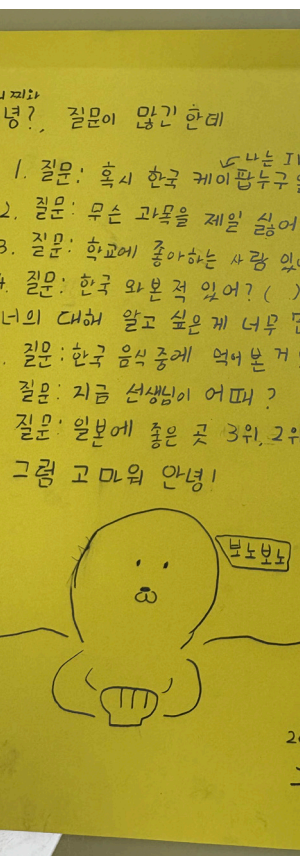 찌와
녕?, 질문이 많긴 한데
↙ 나는 IV
1. 질문: 혹시 한국 케이팝누구
2. 질문: 무슨 과목을 제일 싫어
3. 질문: 학교에 좋아하는 사람 있
4. 질문: 한국 와본 적 있어? ( )
너의 대해 알고 싶은 게 너무
. 질문: 한국 음식 중에 먹어 본 거
질문: 지금 선생님이 어때?
질문: 일본에 좋은 곳 3위, 2위
그럼 고마워 안녕!
보노보노